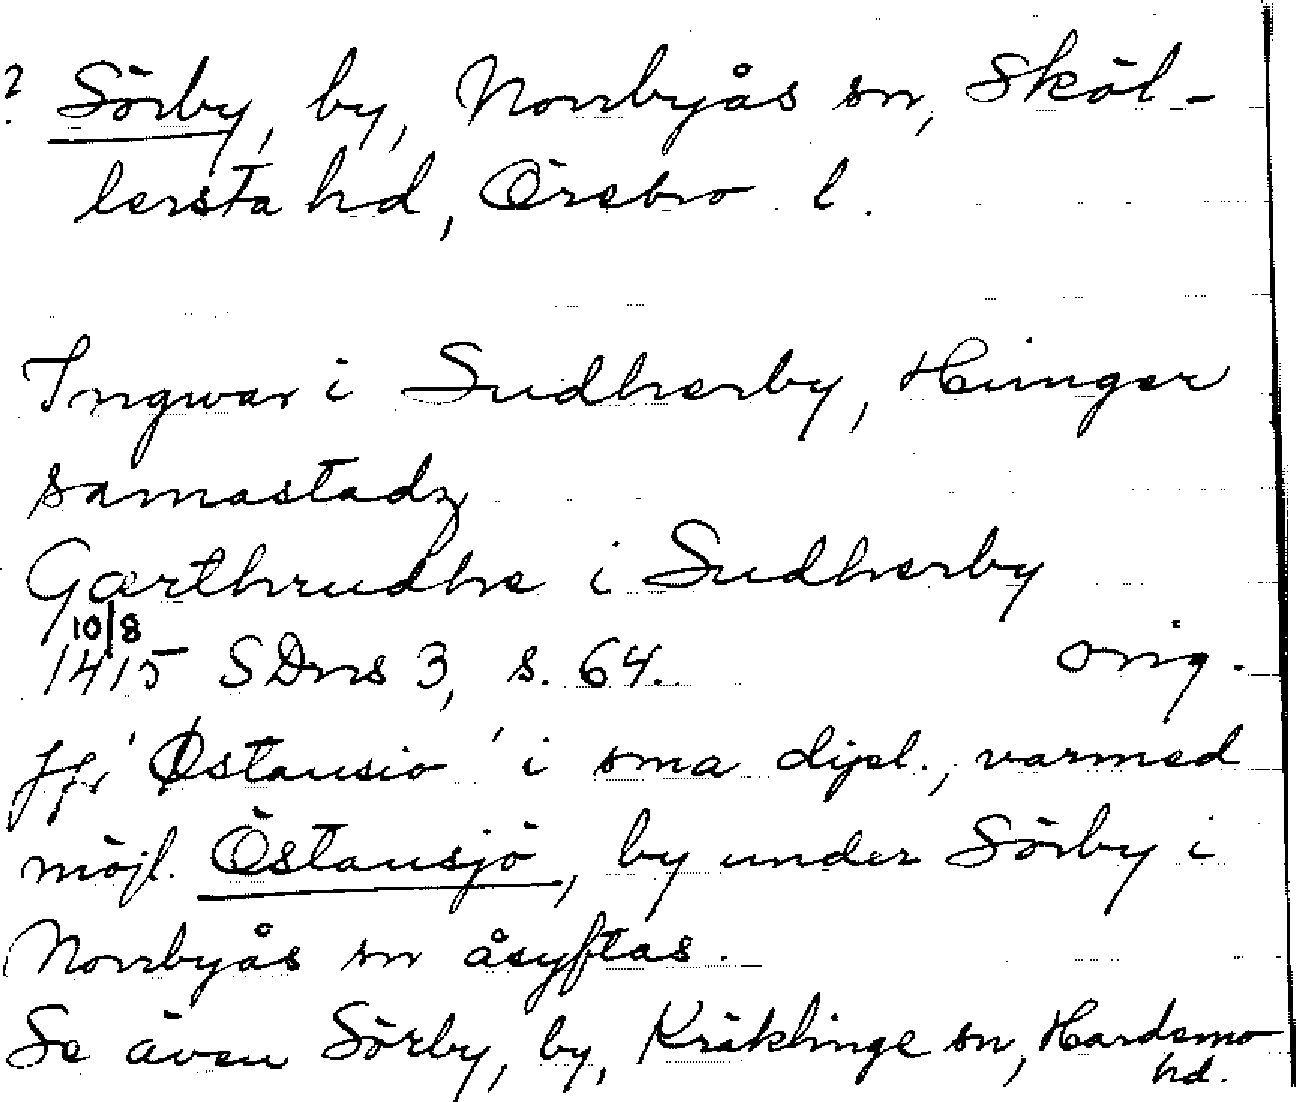 ? Sörby, by, Norrbyås sn, Sköl-
lersta hd, Örebro l.
Ingwar i Sudherby, Hemingær
samastadz
Gærthrudhe i Sudherby
10/8
1415 SDns 3, s. 64. orig.
jfr 'Østansio' i sma dipl., varmed
möjl. Östansjö, by under Sörby i
Norrbyås sn åsyftas.
Se även Sörby, by, Kräklinge sn, Hardemo
hd.